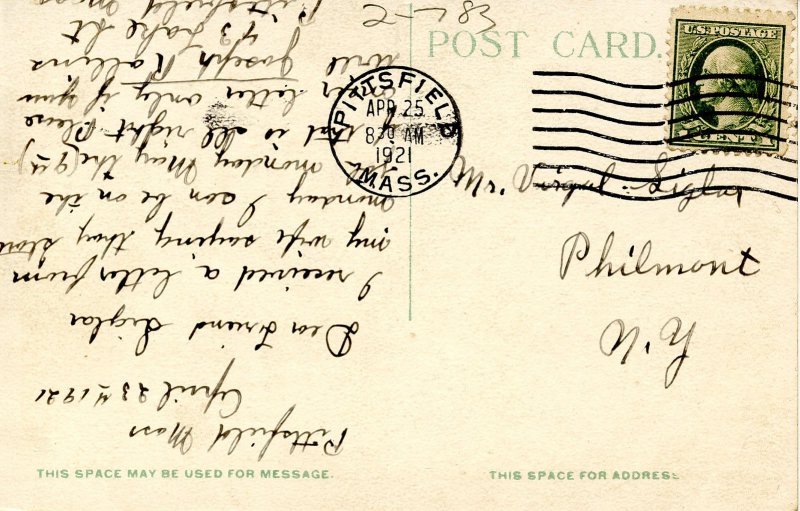 POST CARD.
2-183
U.S. POSTAGE
CENTS
PITTSFIELD
APR 25
830 AM
1921
MASS.
Mr Virgil Siglar
Philmont
N.Y
THIS SPACE FOR ADDRESS
THIS SPACE MAY BE USED FOR MESSAGE.
Pittsfield Mass
April 23rd 1921
Dear Friend Siglar
I received a letter from
my wife saying they start
monday I can be on the
monday May the (9th)
that is all right Please
letter only if you
will Joseph Rollins
43 Lake St
Pittsfield Mass